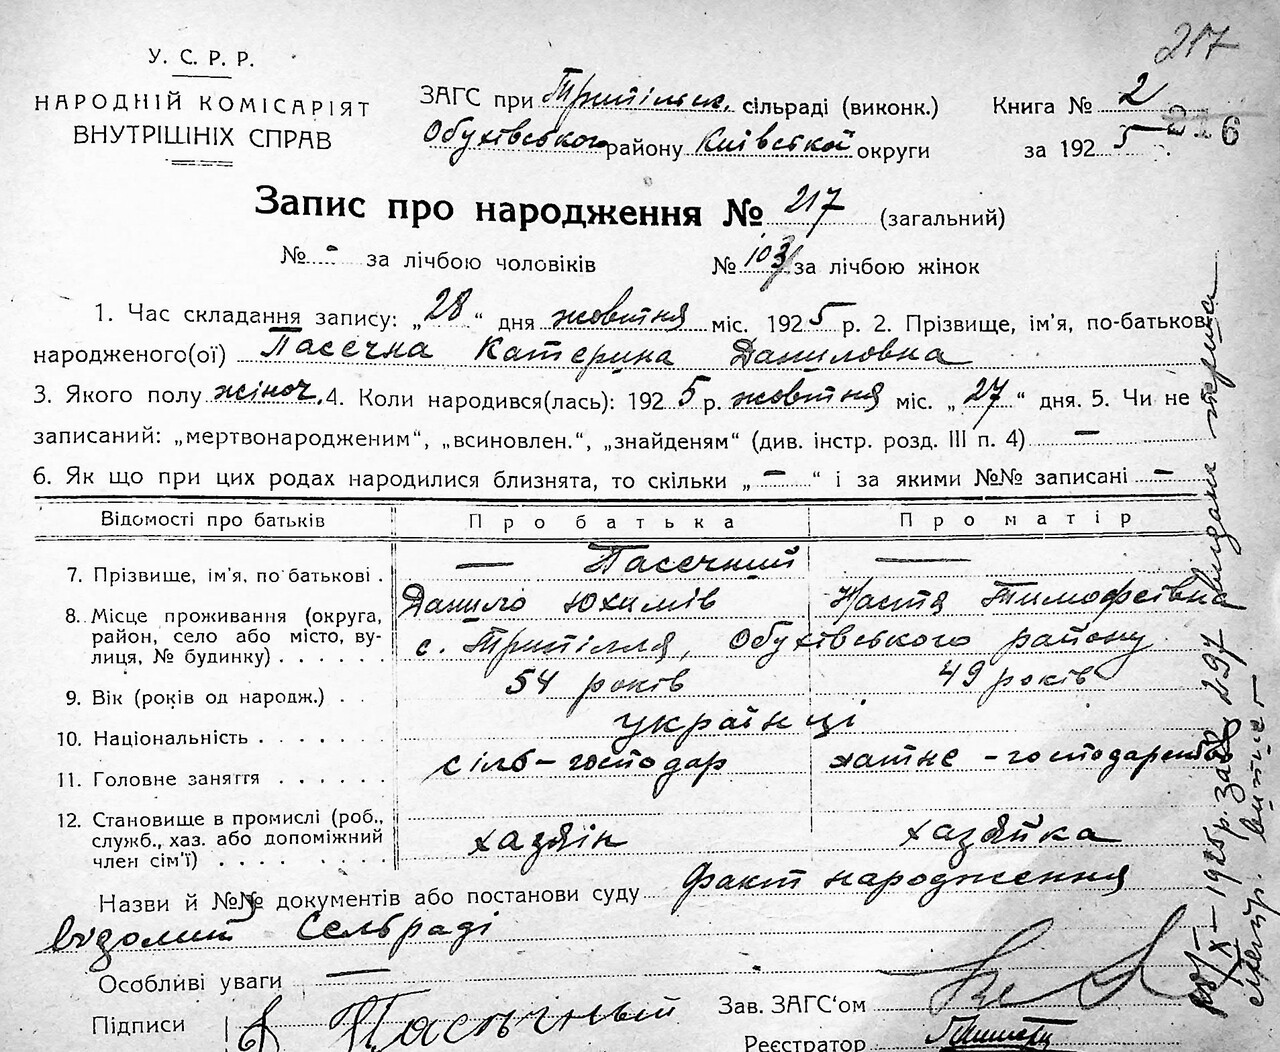 217
У. С. Р. Р.
НАРОДНІЙ КОМІСАРІЯТ
ВНУТРІШНІХ СПРАВ
ЗАГС при Трипільск. сільраді (виконк.)
Обухівського району Київської округи
Книга № 2
за 1925 р.
216
Запис про народження № 217 (загальний)
№ - за лічбою чоловіків № 103 за лічбою жінок
1. Час складання запису: „28“ дня жовтня міс. 1925 р. 2. Прізвище, ім'я, по-батькові
народженого(ої) Пасєчна Катерина Даниловна
3. Якого полу жіноч. 4. Коли народився(лась): 1925 р. жовтня міс. „27“ дня. 5. Чи не
записаний: „мертвонародженим“, „всиновлен.“, „знайденям“ (див. інстр. розд. III п. 4) —
6. Як що при цих родах народилися близнята, то скільки „—“ і за якими №№ записані —
Відомості про батьків Про батька Про матір
7. Прізвище, ім'я, по батькові . — Пасєчний —
Данило Юхимів Настя Тимофеівна
8. Місце проживання (округа,
район, село або місто, ву-
лиця, № будинку) . . . . . . с. Трипілля, Обухівського району
9. Вік (років од народж.) . . 54 років 49 років
10. Національність . . . . . . українці
11. Головне заняття . . . . . . сіль-господар хатне-господарств
12. Становище в промислі (роб.,
служб., хаз. або допоміжний
член сім'ї) . . . . . . . . хазяін хазяйка
Назви й №№ документів або постанови суду факт народження
відомий Сельраді
Особливі уваги —
Підписи Пасичный
Зав. ЗАГС'ом
Реєстратор
1925 р. за № 297 видано
витяг